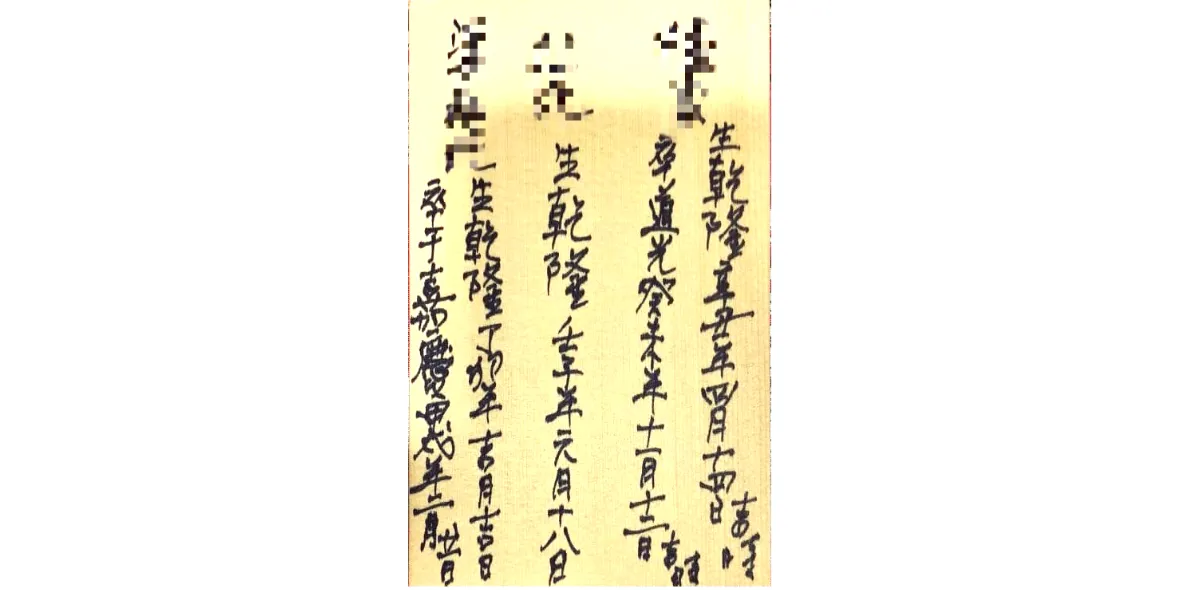 生乾隆辛丑年四月十四日吉時
卒道光癸未年十一月十二日吉時
生乾隆壬午年元月十八日
生乾隆丁卯年吉月吉日
卒于嘉慶甲戌年二月廿一日